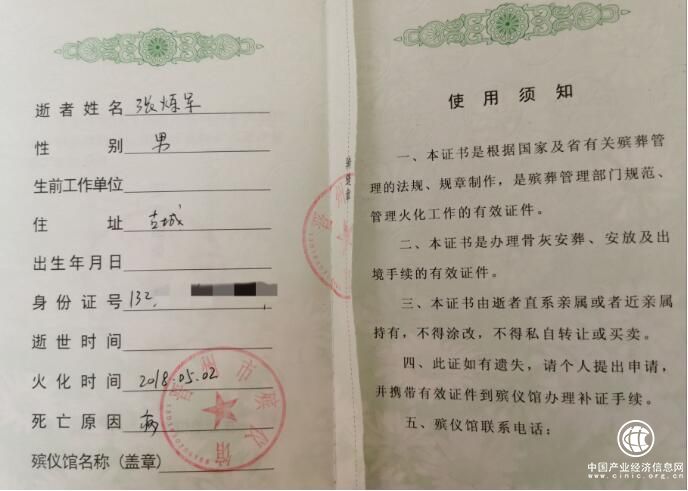 逝者姓名 张炼军
性别 男
生前工作单位
住址 古城
出生年月日
身份证号 132
逝世时间
火化时间 2018.05.02
死亡原因 病
殡仪馆名称(盖章)
州市殡仪馆
骑缝章
使用须知
一、本证书是根据国家及省有关殡葬管
理的法规、规章制作，是殡葬管理部门规范、
管理火化工作的有效证件。
二、本证书是办理骨灰安葬、安放及出
境手续的有效证件。
三、本证书由逝者直系亲属或者近亲属
持有，不得涂改，不得私自转让或买卖。
四、此证如有遗失，请个人提出申请，
并携带有效证件到殡仪馆办理补证手续。
五、殡仪馆联系电话：
中国产业经济信息网
www.cinic.org.cn